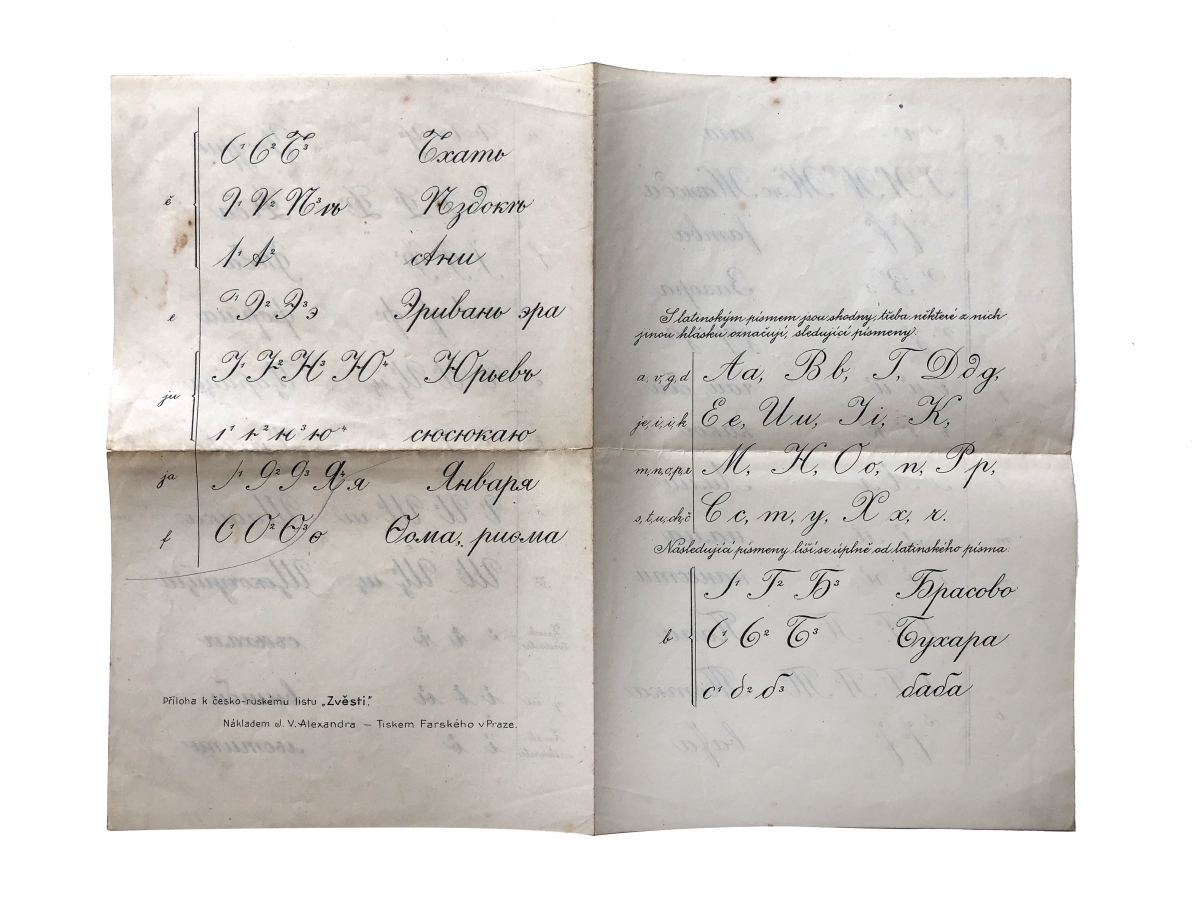 ě
С¹ С² Ѣ³ Ѣхать
1¹ V² П³ пѣ Пздокъ
1¹ А² Ани
e
Э² Э³ э Эривань эра
ju
I¹ I² Н³ Ю⁴ Юрьевъ
ı¹ ı² н³ ю⁴ сюсюкаю
ja
Я⁴ я Января
f
С¹ О² Ѳ³ ѳ Ѳома, риѳма
Příloha k česko-ruskému listu „Zvěsti".
Nákladem J. V. Alexandra. — Tiskem Farského v Praze.
S latinským písmem jsou shodny, třeba některé z nich
jinou hlásku označují, sledující písmeny:
a, v, g, d Аа, Вв, Г, Ддg,
je, i, i, k Ее, Ии, Ii, К,
m, n, o, p, r М, Н, Оо, п, Рр,
s, t, u, ch, č Сс, т, у, Хх, г.
Následující písmeny liší se úplně od latinského písma:
b
1¹ Г² Б³ Брасово
С¹ С² Б³ Бухара
с¹ б² б³ баба